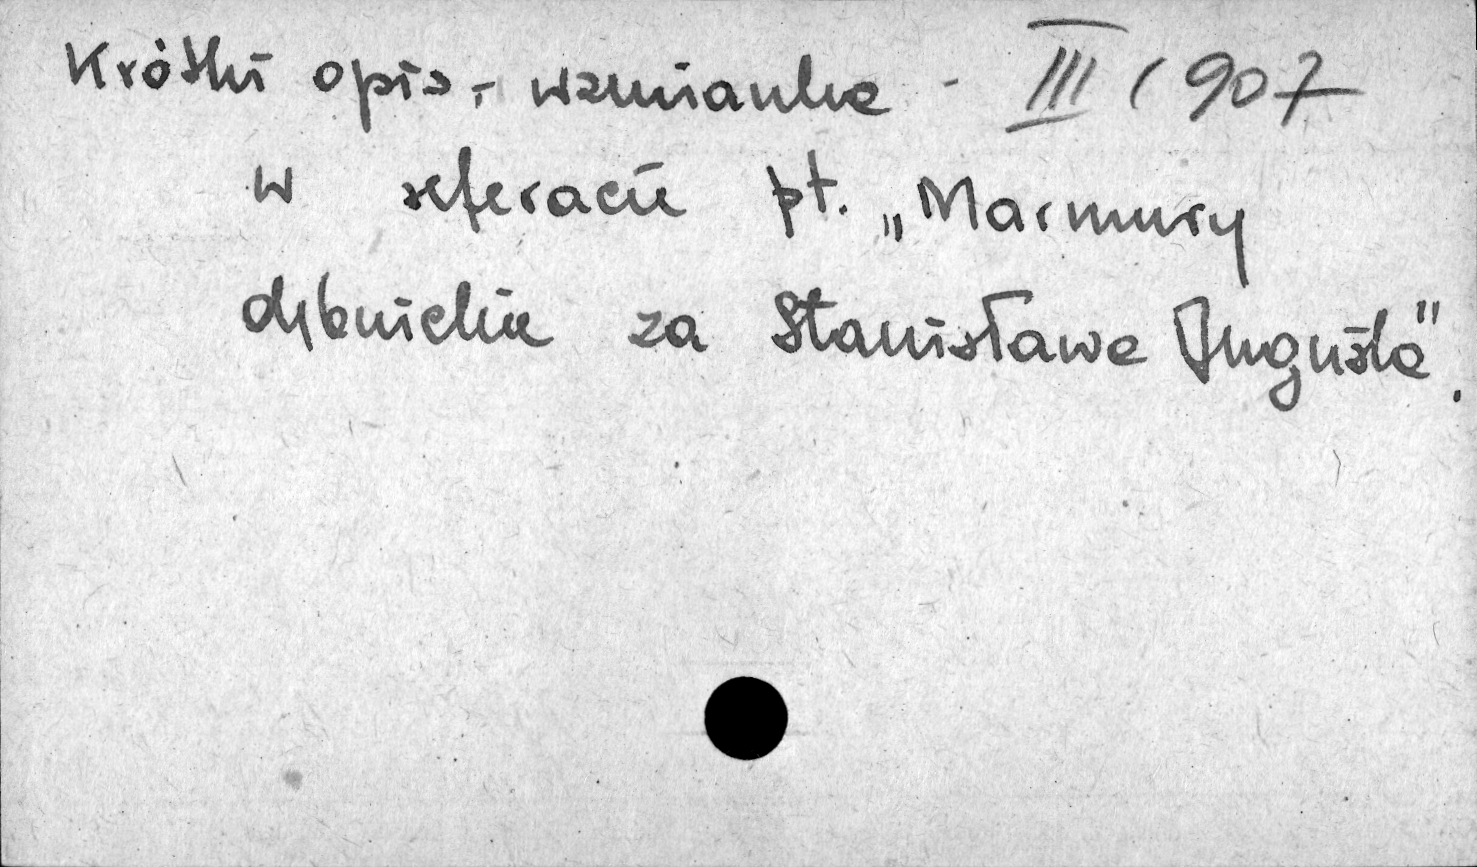 Krótki opis, - wzmianka - III / 907
w referacie pt. „Marmury
dębnickie za Stanisława Augusta”.